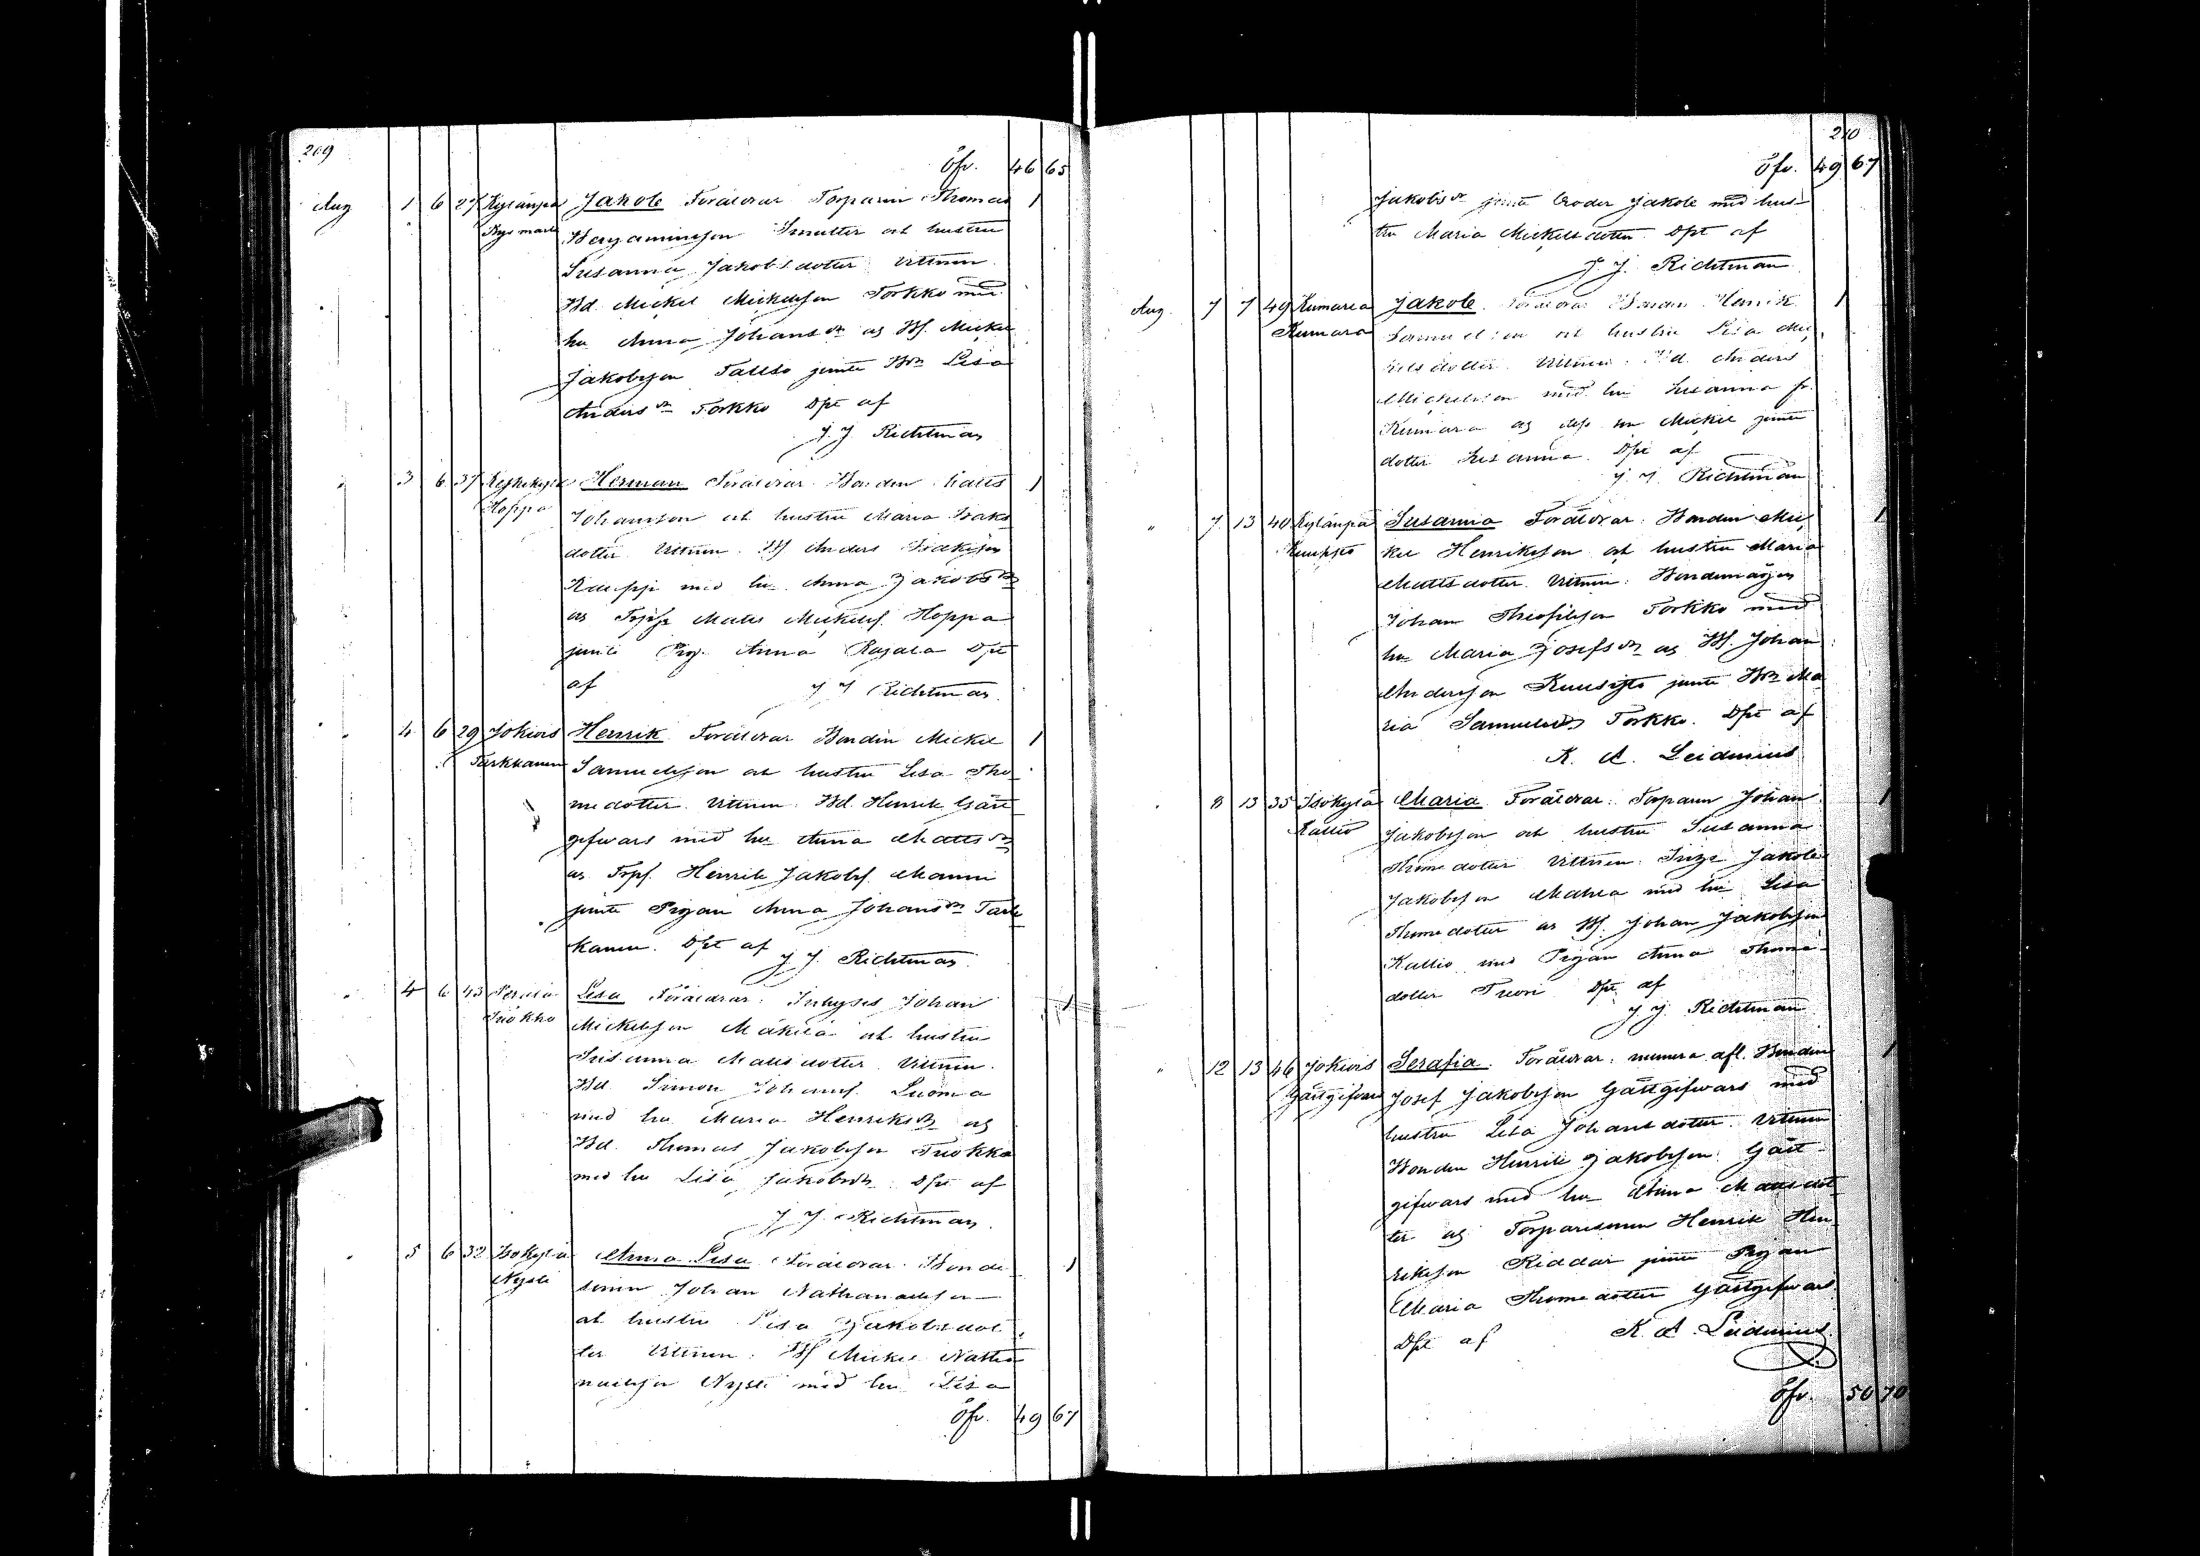 209
Öfv. 46 65
Aug 1 6 27 Kylänpä Jakob Föräldrar Torparen Thomas 1
Benjaminsson och hustru
Susanna Jakobsdotter. Vittnen
Bd. Mickel Mickelsson Torkko med
hu Anna Johansdr och Bs. Mickel
Jakobsson jemte Lisa
Andersdr Torkko Dpt af
J. J. Richtman
3 6 37 Hoppa Herman Föräldrar Bonden Matts 1
Johansson och hustru Maria Isaks
dotter Vittnen. Bs Anders Isaksson
Kauppi med hu Anna Jakobsdr
och Matts Mickelss. Hoppa
jemte Pig. Anna Rajala Dpt
af J J Richtman
4 6 29 Jokivis Tarkkanen Henrik Föräldrar Bonden Mickel 1
Samuelsson och hustru Lisa Tho
medotter. Vittnen. Bd. Henrik Gäst
gifvars med hu Anna Mattsdr
och Torps. Henrik Jakobss. Manni
jemte Pigan Anna Johansdr Tark
kanen. Dpt af J. J. Richtman
4 6 43 Perälä Tuokko Lisa Föräldrar: Inhyses Johan 1
Mickelsson Mäkelä och hustru
Susanna Mattsdotter. Vittnen.
Bd Simon Johanss. Luoma
med hu Maria Henriksdr och
Bd. Thomas Jakobsson Tuokko
med hu Lisa Jakobsdr. Dpt af
J J. Richtman
5 6 32 Isokylä Nysti Anna Lisa Föräldrar. Bonde 1
sonen Johan Nathanaelsson
och hustru Lisa Jakobsdot
ter Vittnen. Bs Mickel Natha
naelsson Nysti med hu Lisa
Öfv. 49 67
210
Öfv. 49 67
Jakobsdr jemte broder Jakob med hus-
tru Maria Mickelsdotter. Dpt af
J. J. Richtman
Aug. 7 7 49 Kumara Jakob Föräldrar Bonden Henrik 1
Kumara Samuelsson och hustru Lisa Mic
kelsdotter. Vittnen. Bd. Anders
Mickelsson med hu Susanna fr.
Kumara och dess son Mickel jemte
dotter Susanna. Dpt af
J. J. Richtman
" 7 13 40 Kylänpä Susanna Föräldrar: Bonden Mic 1
Kauppi kel Henriksson och hustru Maria
Mattsdotter. Vittnen: Bondemågen
Johan Theofilsson Torkko med
hu Maria Josefsdr och Bs. Johan
Andersson Kuusisto jemte Ma
ria Samuelsdr Torkko. Dpt af
K. A. Leidenius
8 13 35 Isokylä Maria Föräldrar: Torparen Johan 1
Kallio Jakobsson och hustru Susanna
Thomedotter Vittnen. Jakob
Jakobsson med hu Lisa
Thomedotter och Bs. Johan Jakobsson
Kallio med Pigan Anna Thome
dotter Dpt af
J J. Richtman
" 12 13 46 Jokivis Serafia. Föräldrar: numera afl. Bonden 1
Gästgifvars Josef Jakobsson Gästgifvars med
hustru Lisa Johansdotter. Vittnen
Bonden Henrik Jakobsson Gäst
gifvars med hu Anna Mattsdot
ter och Torparesonen Henrik Hen
riksson Riddar jemte Pigan
Maria Thomedotter Gästgifvars
Dpt af K. A. Leidenius.
Öfv. 50 70